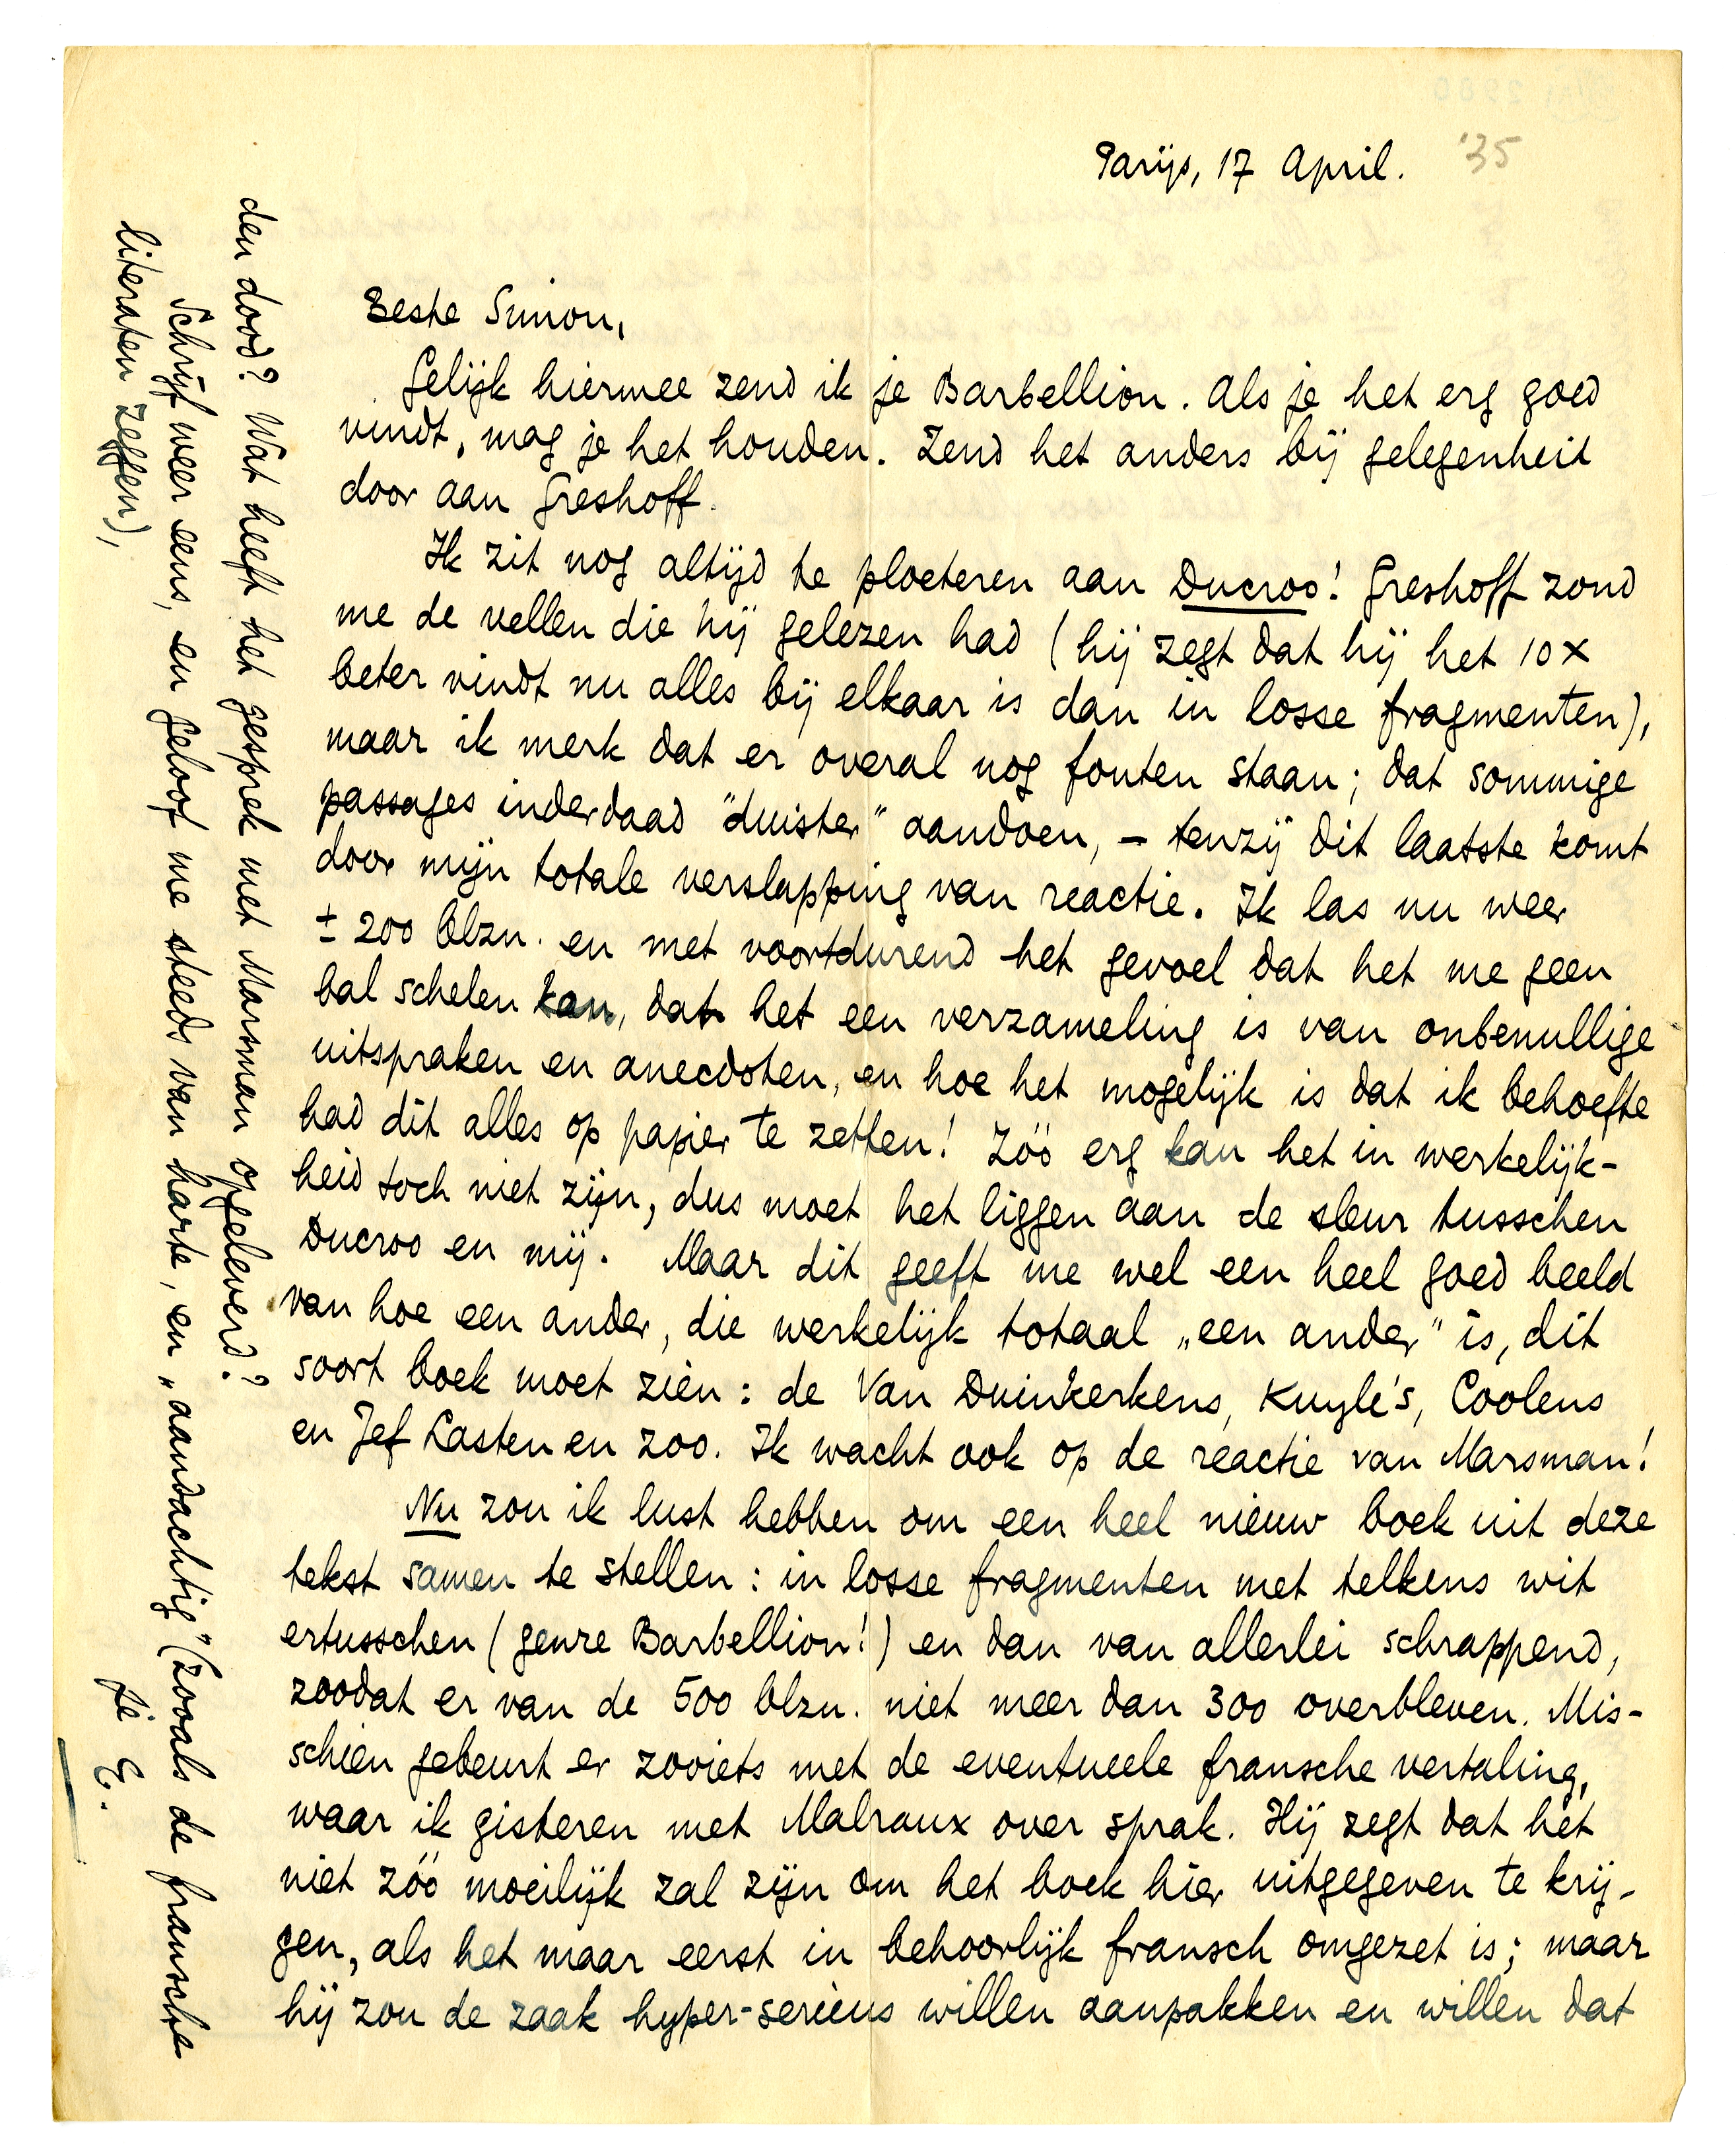 Parijs, 17 April. '35
Beste Simon,
Gelijk hiermee zend ik je Barbellion. Als je het erg goed
vindt, mag je het houden. Zend het anders bij gelegenheid
door aan Greshoff.
Ik zit nog altijd te ploeteren aan Ducroo! Greshoff zond
me de vellen die hij gelezen had (hij zegt dat hij het 10 x
beter vindt nu alles bij elkaar is dan in losse fragmenten),
maar ik merk dat er overal nog fouten staan; dat sommige
passages inderdaad "duister" aandoen, – tenzij dit laatste komt
door mijn totale verslapping van reactie. Ik las nu weer
± 200 blzn. en met voortdurend het gevoel dat het me geen
bal schelen kan, dat het een verzameling is van onbenullige
uitspraken en anecdoten, en hoe het mogelijk is dat ik behoefte
had dit alles op papier te zetten! Zóó erg kan het in werkelijk-
heid toch niet zijn, dus moet het liggen aan de sleur tusschen
Ducroo en mij. Maar dit geeft me wel een heel goed beeld
van hoe een ander, die werkelijk totaal „een ander" is, dit
soort boek moet zien: de Van Duinkerkens, Kuyle's, Coolens
en Jef Lasten en zoo. Ik wacht ook op de reactie van Marsman!
Nu zou ik lust hebben om een heel nieuw boek uit deze
tekst samen te stellen: in losse fragmenten met telkens wit
ertusschen (genre Barbellion!) en dan van allerlei schrappend,
zoodat er van de 500 blzn. niet meer dan 300 overbleven. Mis-
schien gebeurt er zooiets met de eventueele fransche vertaling,
waar ik gisteren met Malraux over sprak. Hij zegt dat het
niet zóó moeilijk zal zijn om het boek hier uitgegeven te krij-
gen, als het maar eerst in behoorlijk fransch omgezet is; maar
hij zou de zaak hyper-serieus willen aanpakken en willen dat
den dood? Wat heeft het gesprek met Marsman opgeleverd?
Schrijf weer eens, en geloof me steeds van harte, en „aandachtig" (zooals de fransche
literaten zeggen),
je E.